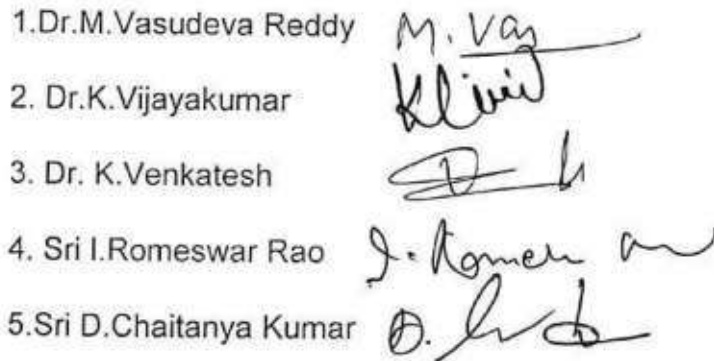 1.Dr.M.Vasudeva Reddy M. Vas
2. Dr.K.Vijayakumar
3. Dr. K.Venkatesh
4. Sri I.Romeswar Rao I. Romesh
5.Sri D.Chaitanya Kumar D.